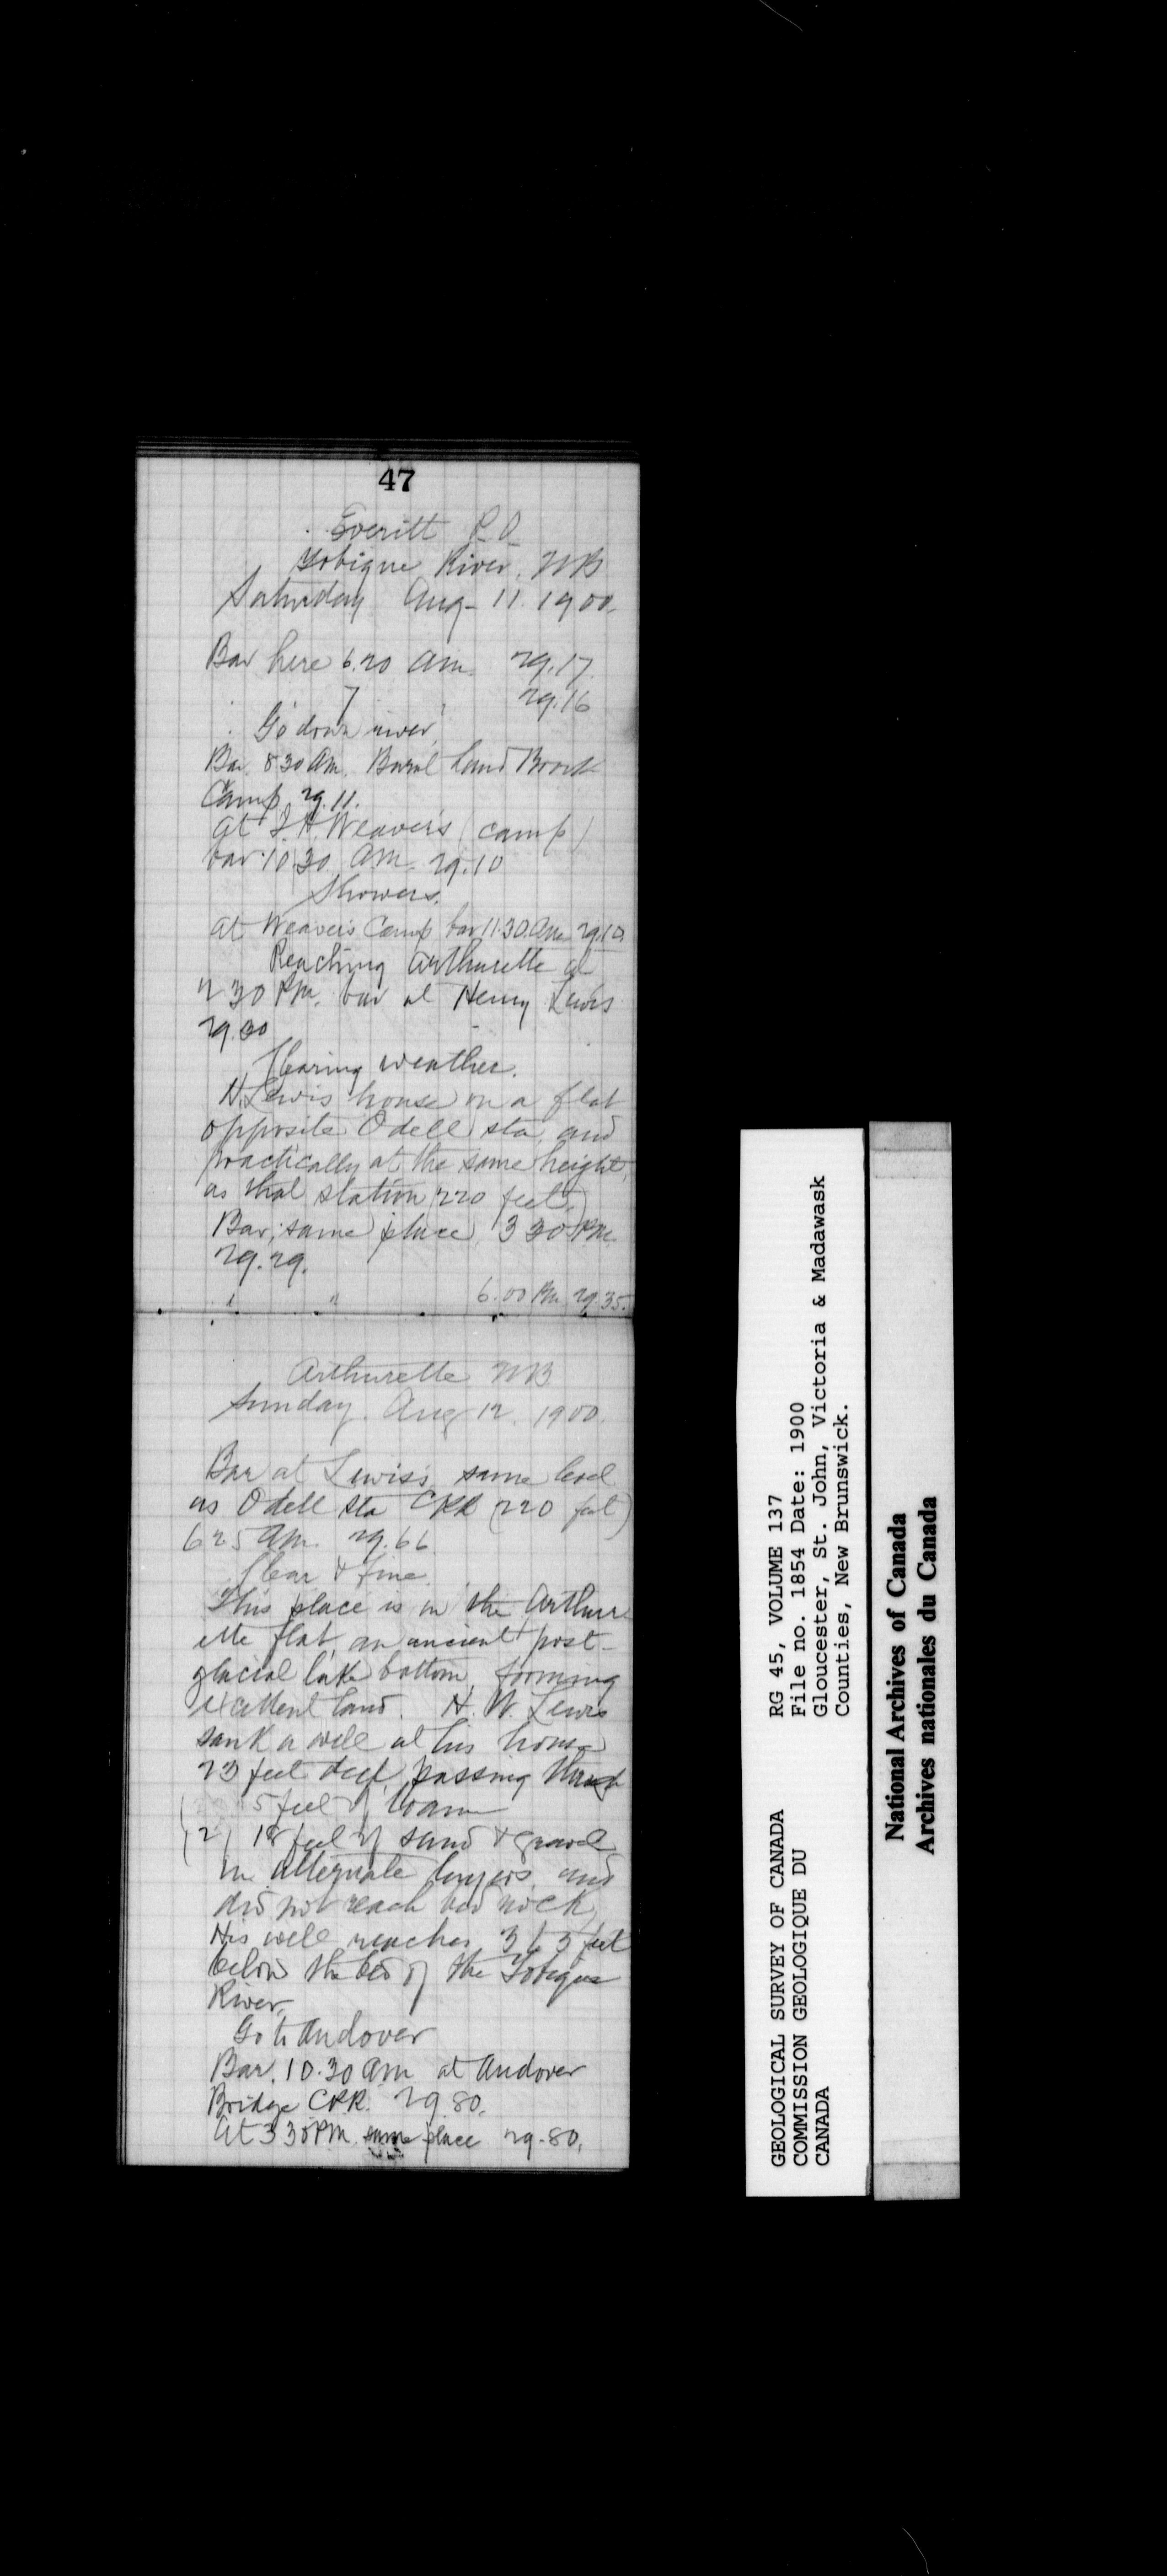 47
Everitt P.O.
Tobique River. NB
Saturday Aug - 11. 1900.
Bar here 6.20 am. 29.17.
7 29.16
Go down river.
Bar. 8 30 Am. Land Brook
Camp. 29.11.
At J. A. Weaver's (camp)
bar. 10.30 AM. 29.10
Showers.
At Weaver's Camp bar 11.30. Am 29.10.
Reaching Arthurette at
2 30 PM. bar at Henry Lewis
29.30
Clearing weather.
H. Lewis house on a flat
opposite Odell sta. and
practically at the same height
as that station (220 feet.)
Bar, same place, 3 30 PM.
29.29.
" " 6.00 PM 29.35.
Arthurette NB
Sunday. Aug 12. 1900.
Bar at Lewis's same level
as Odell Sta CPR (220 feet)
6 25 Am. 29.66.
Clear & fine.
This place is on the Arthur
ette flat, an ancient post-
glacial lake bottom, forming
excellent land. H. W. Lewis
sank a well at his house
23 feet deep, passing through
5 feet of loam
(2) 18 feet of sand & gravel
in alternate layers and
did not reach bed rock.
His well reaches 3 feet
below the bed of the Tobique
River.
Go to Andover
Bar. 10.30 Am at Andover
Bridge CPR. 29 80.
At 3 30 PM. same place 29.80.
GEOLOGICAL SURVEY OF CANADA
COMMISSION GEOLOGIQUE DU
CANADA
RG 45, VOLUME 137
File no. 1854 Date: 1900
Gloucester, St. John, Victoria & Madawask
Counties, New Brunswick.
National Archives of Canada
Archives nationales du Canada